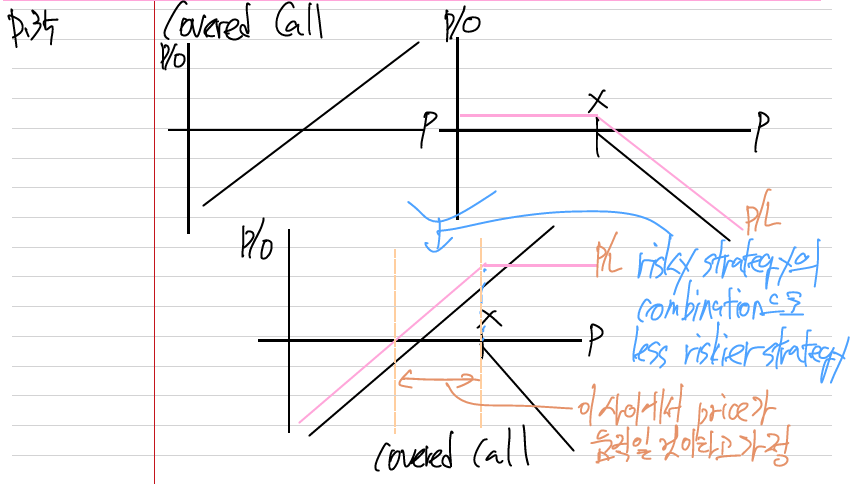 p.35
Covered Call
P/O
P
P/O
X
P
P/L
P/O
P/L
X
P
risky strategy의
combination으로
less riskier strategy
이 사이에서 price가
움직일 것이라고 가정
Covered Call